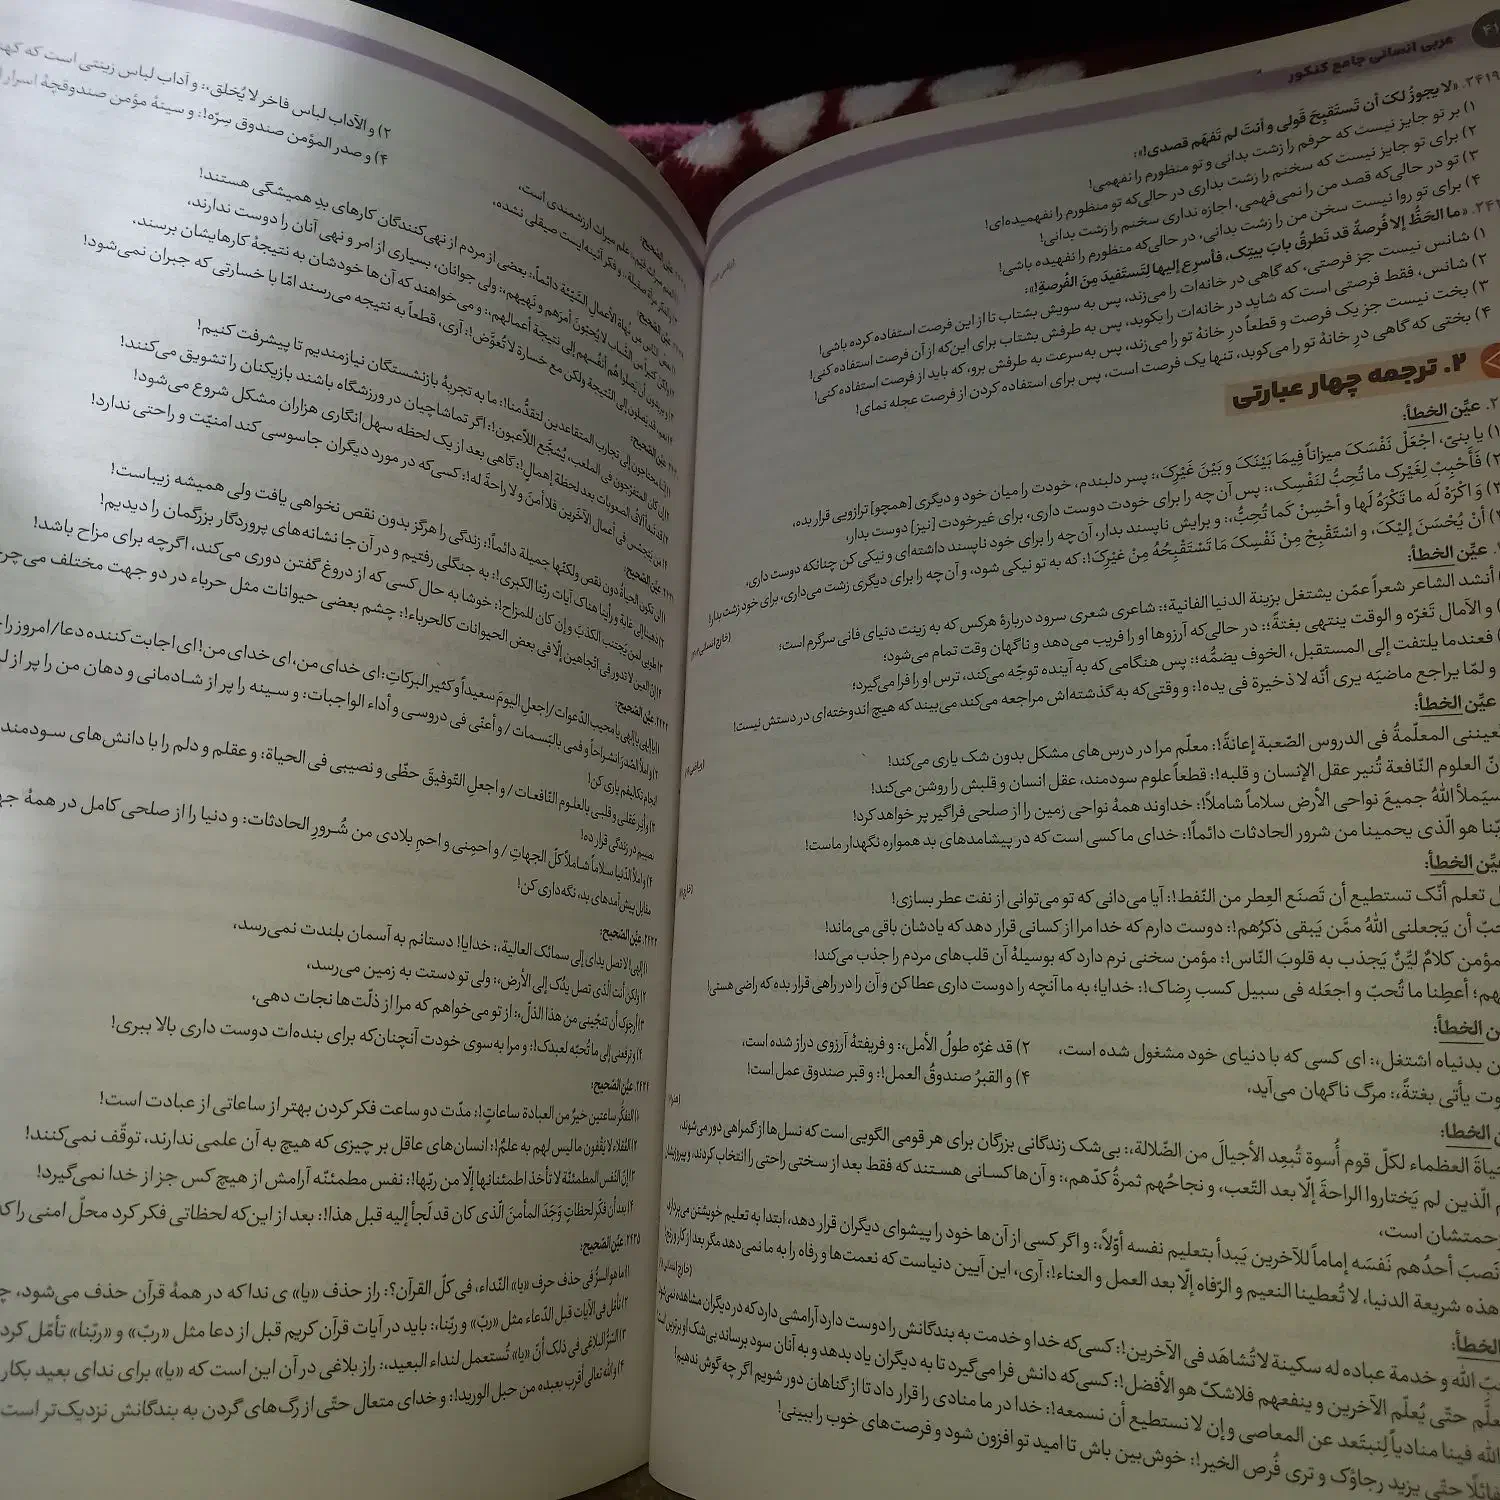 عربی انسانی جامع کنکور
۲۴۱۹. «لا یجوزُ لکَ أن تَستَقبِحَ قَولی و أنتَ لم تَفهَم قصدی!»:
۱) بر تو جایز نیست که حرفم را زشت بدانی و تو منظورم را نفهمی!
۲) برای تو جایز نیست که سخنم را زشت بداری در حالی‌که تو منظورم را نفهمیده‌ای!
۳) تو در حالی‌که قصد من را نمی‌فهمی، اجازه نداری سخنم را زشت بدانی!
۴) برای تو روا نیست سخن من را زشت بدانی، در حالی‌که منظورم را نفهیده باشی!
«ما الحَظُّ إلا فُرصةٌ قد تَطرقُ بابَ بیتِک، فأسرِع إلیها لِتَستَفیدَ مِنَ الفُرصةِ!»:
۱) شانس نیست جز فرصتی، که گاهی در خانه‌ات را می‌زند، پس به سویش بشتاب تا از این فرصت استفاده کرده باشی!
۲) شانس، فقط فرصتی است که شاید در خانه‌ات را بکوبد، پس به طرفش بشتاب برای این‌که از آن فرصت استفاده کنی!
۳) بخت نیست جز یک فرصت و قطعاً درِ خانهٔ تو را می‌زند، پس به‌سرعت به طرفش برو، که باید از فرصت استفاده کنی!
۴) بختی که گاهی درِ خانهٔ تو را می‌کوبد، تنها یک فرصت است، پس برای استفاده کردن از فرصت عجله نمای!
۲. ترجمه چهار عبارتی
عیِّن الخطأ:
۱) یا بنیّ، اجْعَلْ نَفْسَکَ میزاناً فِیمَا بَیْنَکَ و بَیْنَ غَیْرِکَ،: پسر دلبندم، خودت را میان خود و دیگری [همچو] ترازویی قرار بده،
۲) فَأَحْبِبْ لِغَیْرِکَ ما تُحِبُّ لنَفْسِکَ،: پس آن‌چه را برای خودت دوست داری، برای غیرخودت [نیز] دوست بدار،
۳) وَ اکْرَهْ لَه ما تَکْرَهُ لَها و أحْسِنْ کَما تُحِبُّ،: و برایش ناپسند بدار، آن‌چه را برای خود ناپسند داشته‌ای و نیکی کن چنانکه دوست داری،
أنْ یُحْسَنَ إلیْکَ، و اسْتَقْبِحْ مِنْ نَفْسِکَ مَا تَسْتَقْبِحُهُ مِنْ غَیْرِکَ!: که به تو نیکی شود، و آن‌چه را برای دیگری زشت می‌داری، برای خود زشت بدار!
عیِّن الخطأ:
أنشد الشاعر شعراً عمّن یشتغل بزینة الدنیا الفانیة،: شاعری شعری سرود دربارهٔ هرکس که به زینت دنیای فانی سرگرم است؛
و الآمال تَغرّه و الوقت ینتهی بغتةً؛: در حالی‌که آرزوها او را فریب می‌دهد و ناگهان وقت تمام می‌شود؛
فعندما یلتفت إلی المستقبل، الخوف یضمُّه؛: پس هنگامی که به آینده توجّه می‌کند، ترس او را فرا می‌گیرد؛
و لمّا یراجع ماضیَه یری أنّه لا ذخیرة فی یده!: و وقتی‌که به گذشته‌اش مراجعه می‌کند می‌بیند که هیچ اندوخته‌ای در دستش نیست!
عیِّن الخطأ:
المعلّمةُ فی الدروس الصّعبة إعانةً!: معلّم مرا در درس‌های مشکل بدون شک یاری می‌کند!
العلوم النّافعة تُنیر عقل الإنسان و قلبه!: قطعاً علوم سودمند، عقل انسان و قلبش را روشن می‌کند!
سیَملأ اللهُ جمیعَ نواحی الأرض سلاماً شاملاً!: خداوند همهٔ نواحی زمین را از صلحی فراگیر پر خواهد کرد!
هو الّذی یحمینا من شرور الحادثات دائماً!: خدای ما کسی است که در پیشامدهای بد همواره نگهدار ماست!
الخطأ:
تعلم أنّک تستطیع أن تَصنَع العِطر من النّفط!: آیا می‌دانی که تو می‌توانی از نفت عطر بسازی!
أن یَجعلنی اللهُ ممَّن یَبقی ذکرُهم!: دوست دارم که خدا مرا از کسانی قرار دهد که یادشان باقی می‌ماند!
کلامٌ لیِّنٌ یَجذب به قلوبَ النّاس!: مؤمن سخنی نرم دارد که بوسیلهٔ آن قلب‌های مردم را جذب می‌کند!
أعطِنا ما تُحبّ و اجعَله فی سبیل کسب رِضاک!: خدایا؛ به ما آنچه را دوست داری عطا کن و آن را در راهی قرار بده که راضی هستی!
الخطأ:
بدنیاه اشتغل،: ای کسی که با دنیای خود مشغول شده است،
۲) قد غرّه طولُ الأمل،: و فریفتهٔ آرزوی دراز شده است،
یأتی بغتةً،: مرگ ناگهان می‌آید،
۴) و القبرُ صندوقُ العمل!: و قبر صندوق عمل است!
الخطأ:
العظماء لکلّ قوم أُسوة تُبعِد الأجیالَ من الضّلالة،: بی‌شک زندگانی بزرگان برای هر قومی الگویی است که نسل‌ها از گمراهی دور می‌شوند،
الّذین لم یَختاروا الراحةَ إلّا بعد التّعب، و نجاحُهم ثمرةُ کدّهم،: و آن‌ها کسانی هستند که فقط بعد از سختی راحتی را انتخاب کردند، و
زحمتشان است،
نَصبَ أحدُهم نَفسَه إماماً للآخرین یَبدأ بتعلیم نفسه أوّلاً،: و اگر کسی از آن‌ها خود را پیشوای دیگران قرار دهد، ابتدا به تعلیم خویشتن می‌پردازد
هذه شریعة الدنیا، لا تُعطینا النعیم و الرّفاه إلّا بعد العمل و العناء!: آری، این آیین دنیاست که نعمت‌ها و رفاه را به ما نمی‌دهد مگر بعد از کار و رنج!
الخطأ:
الله و خدمة عباده له سکینة لا تُشاهَد فی الآخرین!: کسی‌که خدا و خدمت به بندگانش را دوست دارد آرامشی دارد که در دیگران مشاهده نمی‌شود!
حتّی یُعلّم الآخرین و ینفعهم فلاشکّ هو الأفضل!: کسی‌که دانش فرا می‌گیرد تا به دیگران یاد بدهد و به آنان سود برساند بی‌شک او برترین است!
الله فینا منادیاً لِنبتَعد عن المعاصی و إن لا نستطیع أن نسمعه!: خدا در ما منادی را قرار داد تا از گناهان دور شویم اگر چه گوش ندهیم!
حتّی یزید رجاؤک و تری فُرص الخیر!: خوش‌بین باش تا امید تو افزون شود و فرصت‌های خوب را ببینی!
۲) و الآداب لباس فاخر لا یُخلق،: و آداب لباس زینتی است که
۴) و صدر المؤمن صندوق سِرّه!: و سینهٔ مؤمن صندوقچهٔ اسرار
علم میراث ارزشمندی است،
و فکر آئینه‌ایست صیقلی نشده،
عیِّن الصّحیح:
النّاس من نُهاة الأعمالِ السَّیِّئة دائماً،: بعضی از مردم از نهی‌کنندگان کارهای بدِ همیشگی هستند!
لا یُحبّونَ أمرَهم و نَهیهم،: ولی جوانان، بسیاری از امر و نهی آنان را دوست ندارند،
أنفُسهم إلی نتیجة أعمالهم،: و می‌خواهند که آن‌ها خودشان به نتیجهٔ کارهایشان برسند،
یَصلون إلی النّتیجة ولکن مع خسارة لا تُعوَّض!: آری، قطعاً به نتیجه می‌رسند امّا با خسارتی که جبران نمی‌شود!
عیِّن الصّحیح:
إلی تجارب المتقاعدین لتقدُّمنا!: ما به تجربهٔ بازنشستگان نیازمندیم تا پیشرفت کنیم!
۲) إن کان المتفرّجون فی الملعب، یُشجّع اللّاعبون!: اگر تماشاچیان در ورزشگاه باشند بازیکنان را تشویق می‌کنند!
الصعوبات بعد لحظة إهمال!: گاهی بعد از یک لحظه سهل‌انگاری هزاران مشکل شروع می‌شود!
۴) من یَتجسّس فی أعمال الآخرین فلا أمنَ و لا راحةَ له!: کسی‌که در مورد دیگران جاسوسی کند امنیّت و راحتی ندارد!
عیِّن الصّحیح:
۱) لن تکون الحیاةُ دون نقص ولکنّها جمیلة دائماً!: زندگی را هرگز بدون نقص نخواهی یافت ولی همیشه زیباست!
۲) ذهبنا إلی غابة و رأینا هناک آیات ربّنا الکبری!: به جنگلی رفتیم و در آن جا نشانه‌های پروردگار بزرگمان را دیدیم!
۳) طوبی لمن یَجتنب الکذبَ و إن کان للمزاح!: خوشا به حال کسی که از دروغ گفتن دوری می‌کند، اگرچه برای مزاح باشد!
۴) إنّ العین لا تدور فی اتّجاهین إلّا فی بعض الحیوانات کالحرباء!: چشم بعضی حیوانات مثل حرباء در دو جهت مختلف می
عیِّن الصّحیح:
۱) یا إلهی یا إلهی یا مجیب الدّعوات / اجعلِ الیومَ سعیداً و کثیر البرکاتِ: ای خدای من، ای خدای من! ای اجابت کننده دعا/ امروز را
۲) و املأ الصّدرَ انشراحاً و فمی بالبَسمات / و أعنّی فی دروسی و أداء الواجبات: و سینه را پر از شادمانی و دهان من را پر از
انجام تکالیفم یاری کن!
۳) و أنِر عَقلی و قلبی بالعلوم النّافعات / و اجعلِ التّوفیقَ حظّی و نصیبی فی الحیاة: و عقلم و دلم را با دانش‌های سودمند
نصیبم در زندگی قرار ده!
۴) و املأ الدّنیا سلاماً شاملاً کلّ الجهاتِ / و احمِنی و احمِ بلادی من شُرورِ الحادثات: و دنیا را از صلحی کامل در همهٔ
مقابل پیش‌آمدهای بد، نگه‌داری کن!
عیِّن الصّحیح:
۱) إلهی! لا تصل یدای إلی سمائک العالیة،: خدایا! دستانم به آسمان بلندت نمی‌رسد،
۲) ولکن أنت الّذی تصل یدُک إلی الأرض،: ولی تو دستت به زمین می‌رسد،
۳) أرجوک أن تنجّینی من هذا الذلّ،: از تو می‌خواهم که مرا از ذلّت‌ها نجات دهی،
۴) و ترفعنی إلی ما تُحبّه لعبدک!: و مرا به‌سوی خودت آنچنان‌که برای بنده‌ات دوست داری بالا ببری!
۲۴۲۴. عیِّن الصّحیح:
۱) التفکّر ساعتین خیرٌ من العبادة ساعاتٍ!: مدّت دو ساعت فکر کردن بهتر از ساعاتی از عبادت است!
۲) العُقلاء لا یَقفون ما لیس لهم به علمٌ!: انسان‌های عاقل بر چیزی که هیچ به آن علمی ندارند، توقّف نمی‌کنند!
۳) إنّ النّفس المطمئنّة لا تأخذ اطمئنانها إلّا من ربّها!: نفس مطمئنّه آرامش از هیچ کس جز از خدا نمی‌گیرد!
۴) بعد أن فکّر لحظاتٍ وَجَدَ المأمنَ الّذی کان قد لَجأ إلیه قبل هذا!: بعد از این‌که لحظاتی فکر کرد محلّ امنی را که
۲۴۲۵. عیِّن الصّحیح:
۱) ما هو السرُّ فی حذف حرف «یا» النّداء، فی کلّ القرآن؟: راز حذف «یا» ی ندا که در همهٔ قرآن حذف می‌شود،
۲) تأمّل فی الآیات قبل الدّعاء مثل «ربّ» و ربّنا،: باید در آیات قرآن کریم قبل از دعا مثل «ربّ» و «ربّنا» تأمّل کرد
۳) السّرُّ البلاغی فی ذلک أنّ «یا» تُستعمل لنداء البعید،: راز بلاغی در آن این است که «یا» برای ندای بعید بکار
۴) و الله تعالی أقرب بعبده من حبل الورید!: و خدای متعال حتّی از رگ‌های گردن به بندگانش نزدیک‌تر است